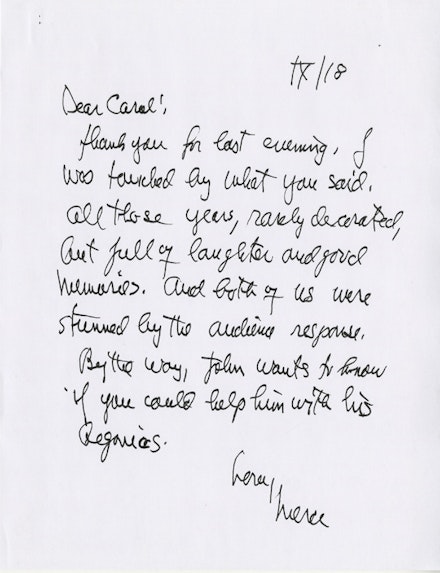 IX/18
Dear Carol,
Thank you for last evening. I
was touched by what you said.
All those years, rarely decorated,
but full of laughter and good
memories. And both of us were
stunned by the audience response.
By the way, John wants to know
if you could help him with his
Begonias.
Love,
Merce